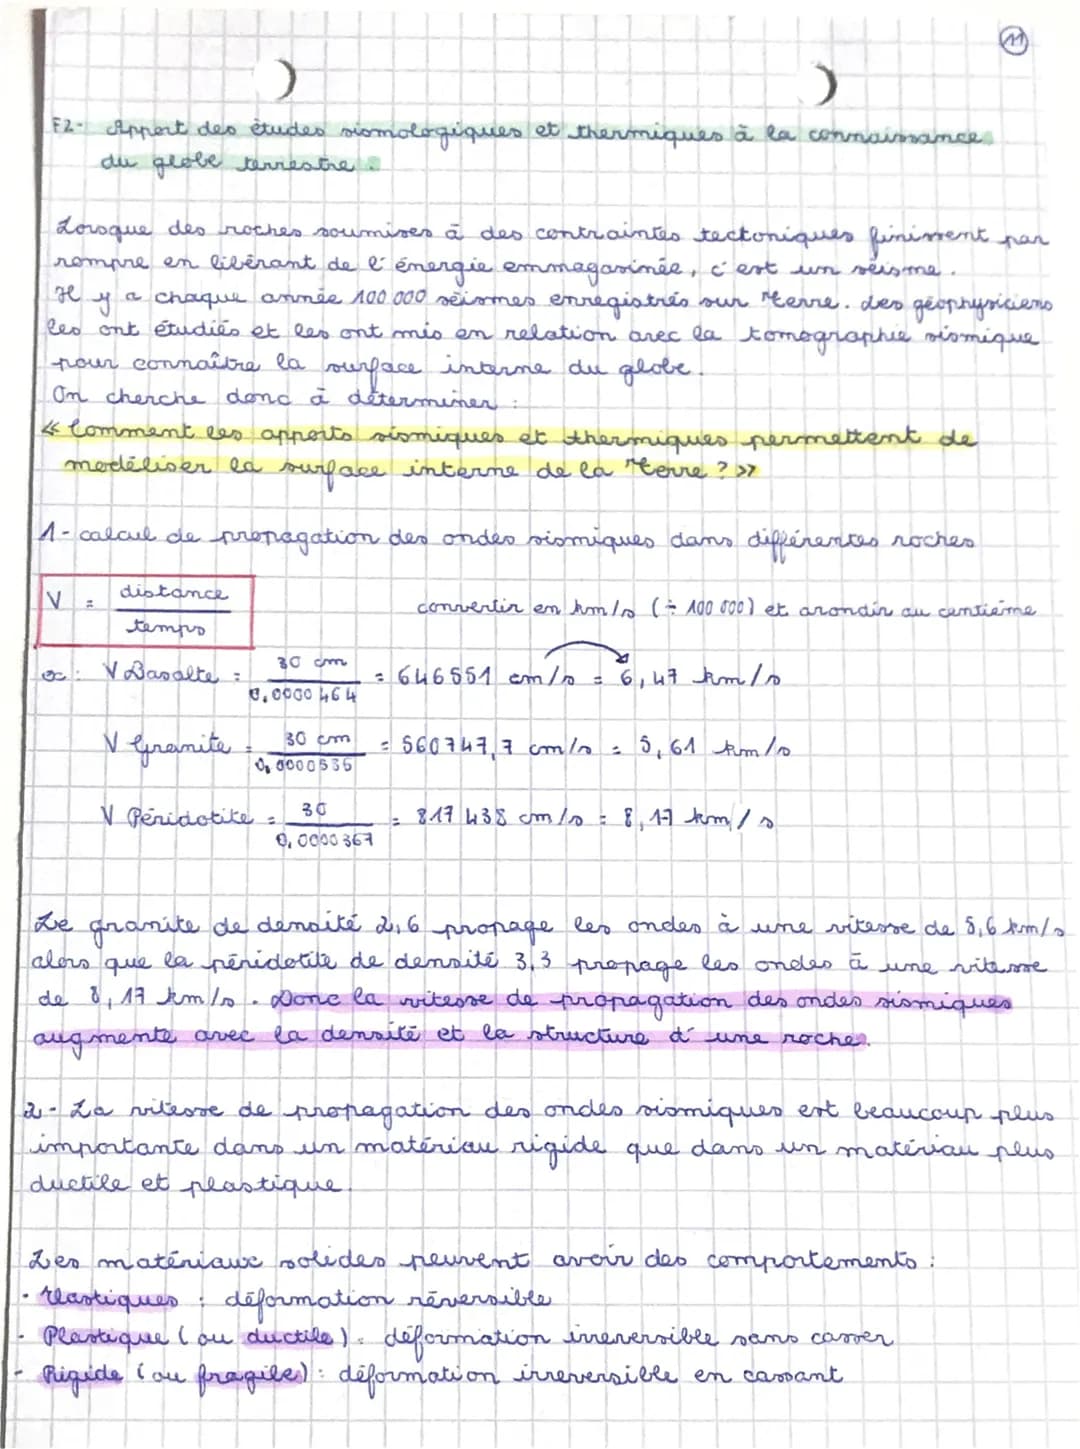 11
F2- Apport des études sismologiques et thermiques à la connaissance
du globe terrestre.
Lorsque des roches soumises à des contraintes tectoniques finissent par
rompre en libérant de l'énergie emmagasinée, c'est un séisme.
Il y a chaque année 100 000 séismes enregistrés sur Terre. des géophysiciens
les ont étudiés et les ont mis en relation avec la tomographie sismique
pour connaître la surface interne du globe.
On cherche donc à déterminer :
« Comment les apports sismiques et thermiques permettent de
modéliser la surface interne de la Terre ? »
1- calcul de propagation des ondes sismiques dans différentes roches
V = distance / temps
convertir en km/s (÷ 100 000) et arondir au centième
ex : V Basalte = 30 cm / 0,0000464 = 646551 cm/s = 6,47 km/s
V Granite = 30 cm / 0,0000535 = 560747,7 cm/s = 5,61 km/s
V Péridotite = 30 / 0,0000367 = 817 438 cm/s = 8,17 km/s
Le granite de densité 2,6 propage les ondes à une vitesse de 5,6 km/s
alors que la péridotite de densité 3,3 propage les ondes à une vitesse
de 8,17 km/s. Donc la vitesse de propagation des ondes sismiques
augmente avec la densité et la structure d'une roche.
2- La vitesse de propagation des ondes sismiques est beaucoup plus
importante dans un matériau rigide que dans un matériau plus
ductile et plastique.
Les matériaux solides peuvent avoir des comportements :
· Elastiques : déformation réversible
- Plastique (ou ductile) : déformation irreversible sans casser
- Rigide (ou fragile) : déformation irreversible en cassant